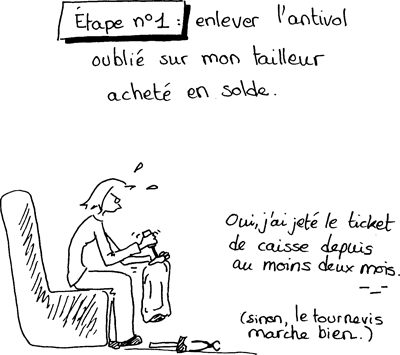 Étape n°1 : enlever l'antivol
oublié sur mon tailleur
acheté en solde.
Oui, j'ai jeté le ticket
de caisse depuis
au moins deux mois.
-_-
(sinon, le tournevis
marche bien.)